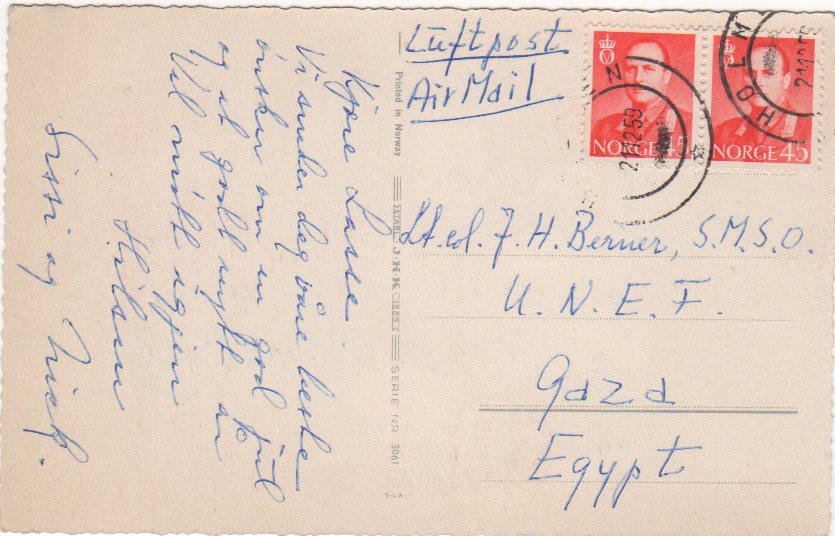 Kjære Lasse.
Vi sender deg våre beste
ønsker om en god jul
og et godt nytt år
Vel møtt igjen
Hilsen
Sissi og
Printed in Norway
SERIE NR 3061
Luftpost
Air Mail
NORGE 45
NORGE 45
HOLM
21 12 59
Lt. col. J. H. Berner, S.M.S.O.
U. N. E. F.
Gaza
Egypt